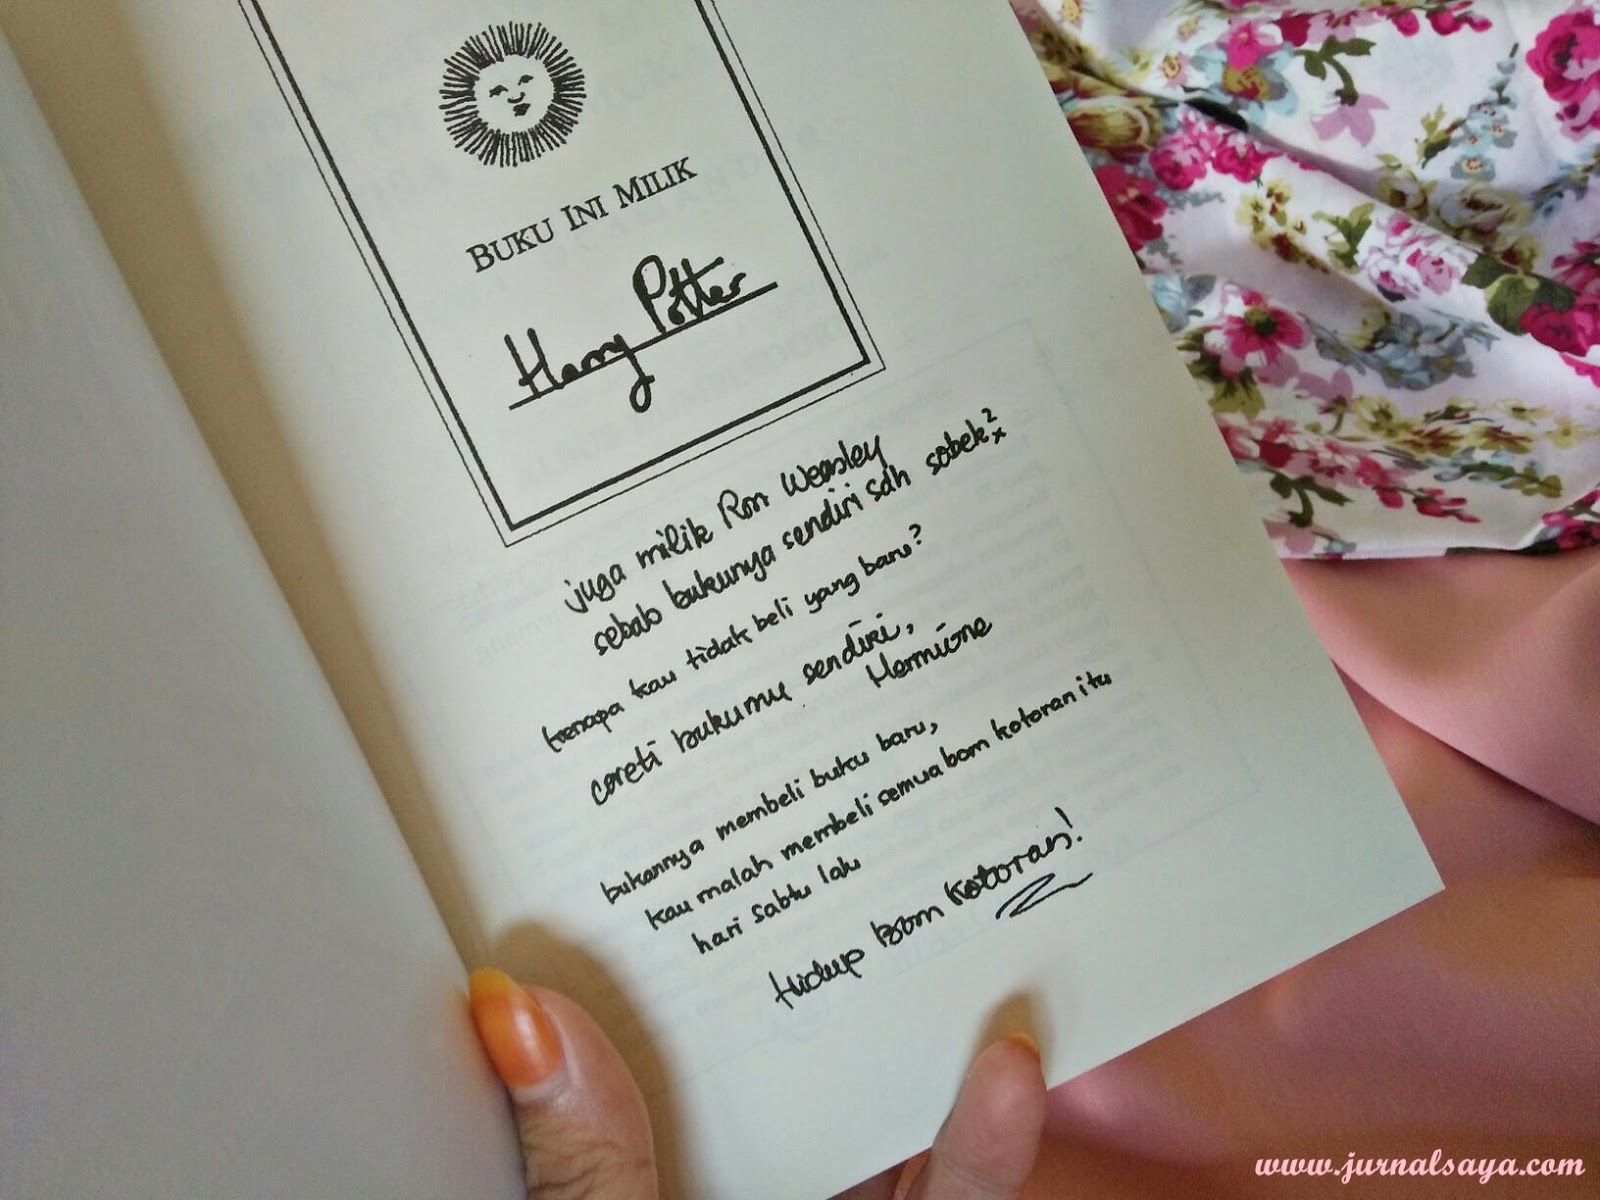 BUKU INI MILIK
Harry Potter
juga milik Ron Weasley
sebab bukunya sendiri sdh sobek²x
kenapa kau tidak beli yang baru?
coreti bukumu sendiri,
Hermione
bukannya membeli buku baru,
kau malah membeli semua bom kotoran itu
hari sabtu lalu
Hidup Bom Kotoran!
www.jurnalsaya.com